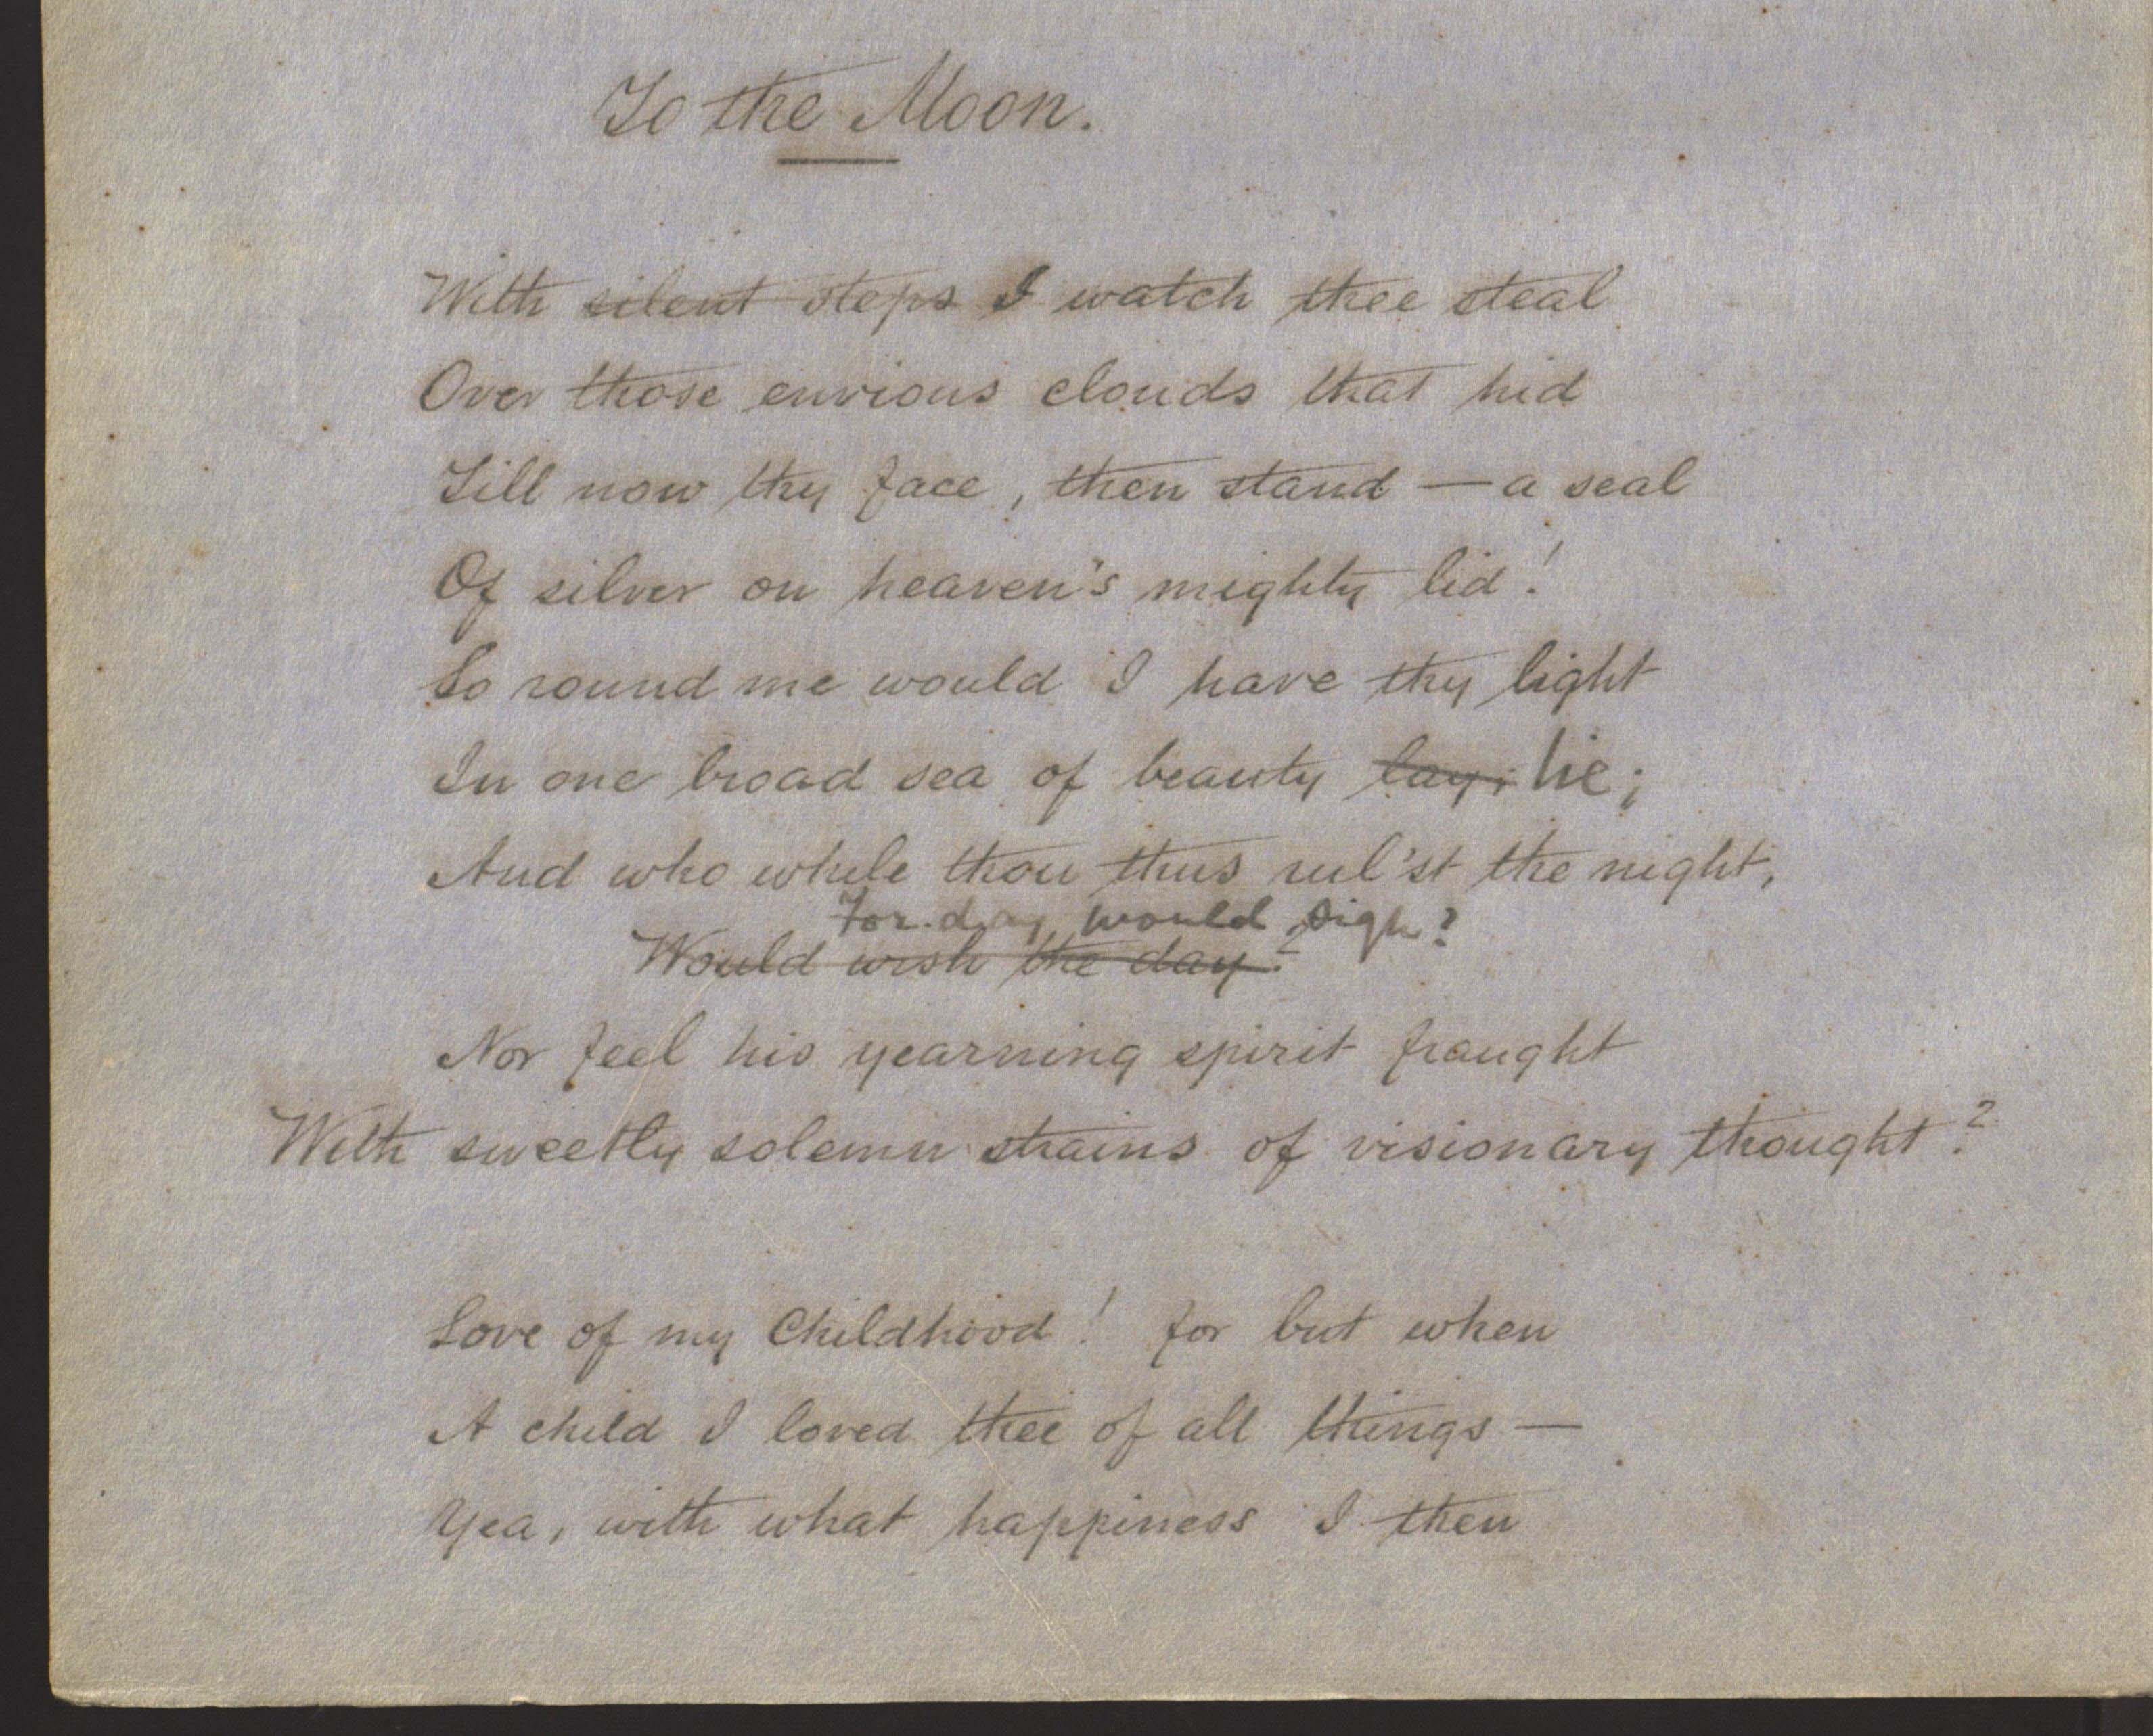 To the Moon.
With silent steps I watch thee steal
Over those envious clouds that hid
Till now thy face, then stand — a seal
Of silver on heaven's mighty lid!
So round me would I have thy light
In one broad sea of beauty lay; lie;
And who while thou thus rul'st the night,
For day would sigh?
Would wish the day?
Nor feel his yearning spirit fraught
With sweetly solemn strains of visionary thought?
Love of my Childhood! for but when
A child I loved thee of all things —
Yea, with what happiness I then